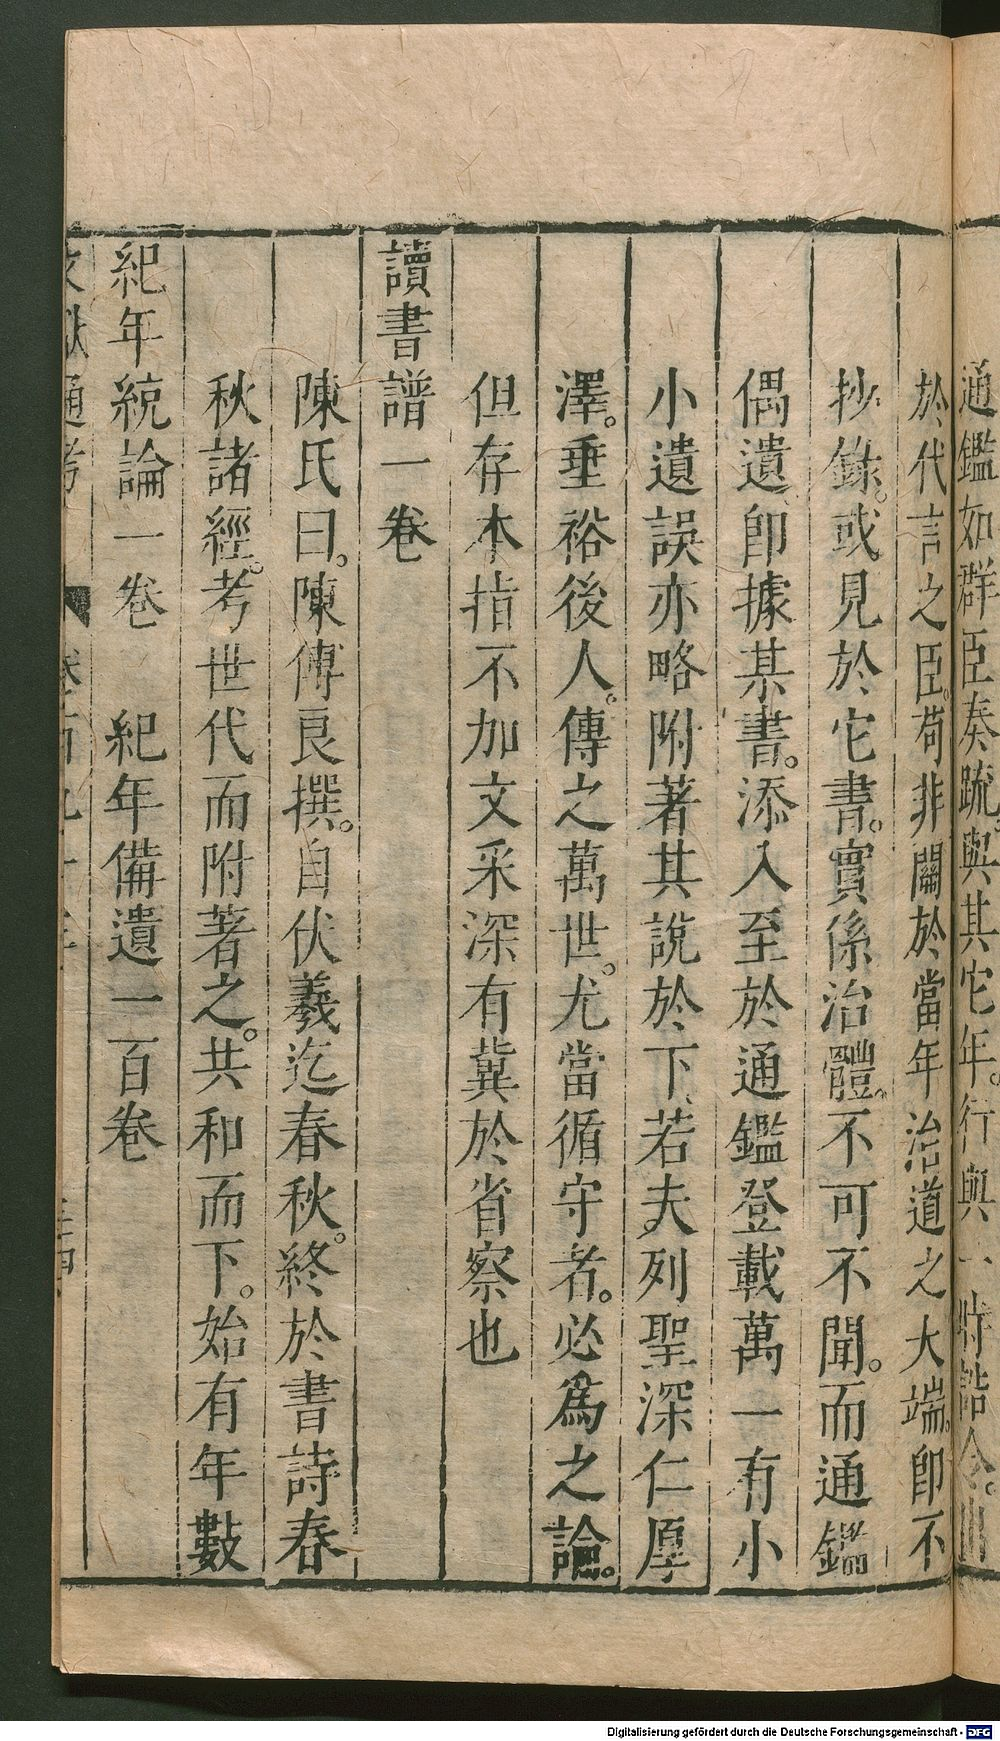 通鑑如群臣奏疏。與其它年。行與一時誥令。
於代言之臣。苟非關於當年治道之大端。即不
抄錄。或見於它書。實係治體。不可不聞。而通鑑
偶遺即據某書。添入至於通鑑登載萬一有小
小遺誤亦略附著其說於下若夫列聖深仁厚
澤。垂裕後人。傳之萬世。尤當循守者。必為之論。
但存本指不加文采深有冀於省察也
讀書譜一卷
陳氏曰。陳傅良撰。自伏羲迄春秋。終於書詩春
秋諸經。考世代而附著之。共和而下。始有年數
紀年統論一卷 紀年備遺一百卷
文獻通考
Digitalisierung gefördert durch die Deutsche Forschungsgemeinschaft - DFG